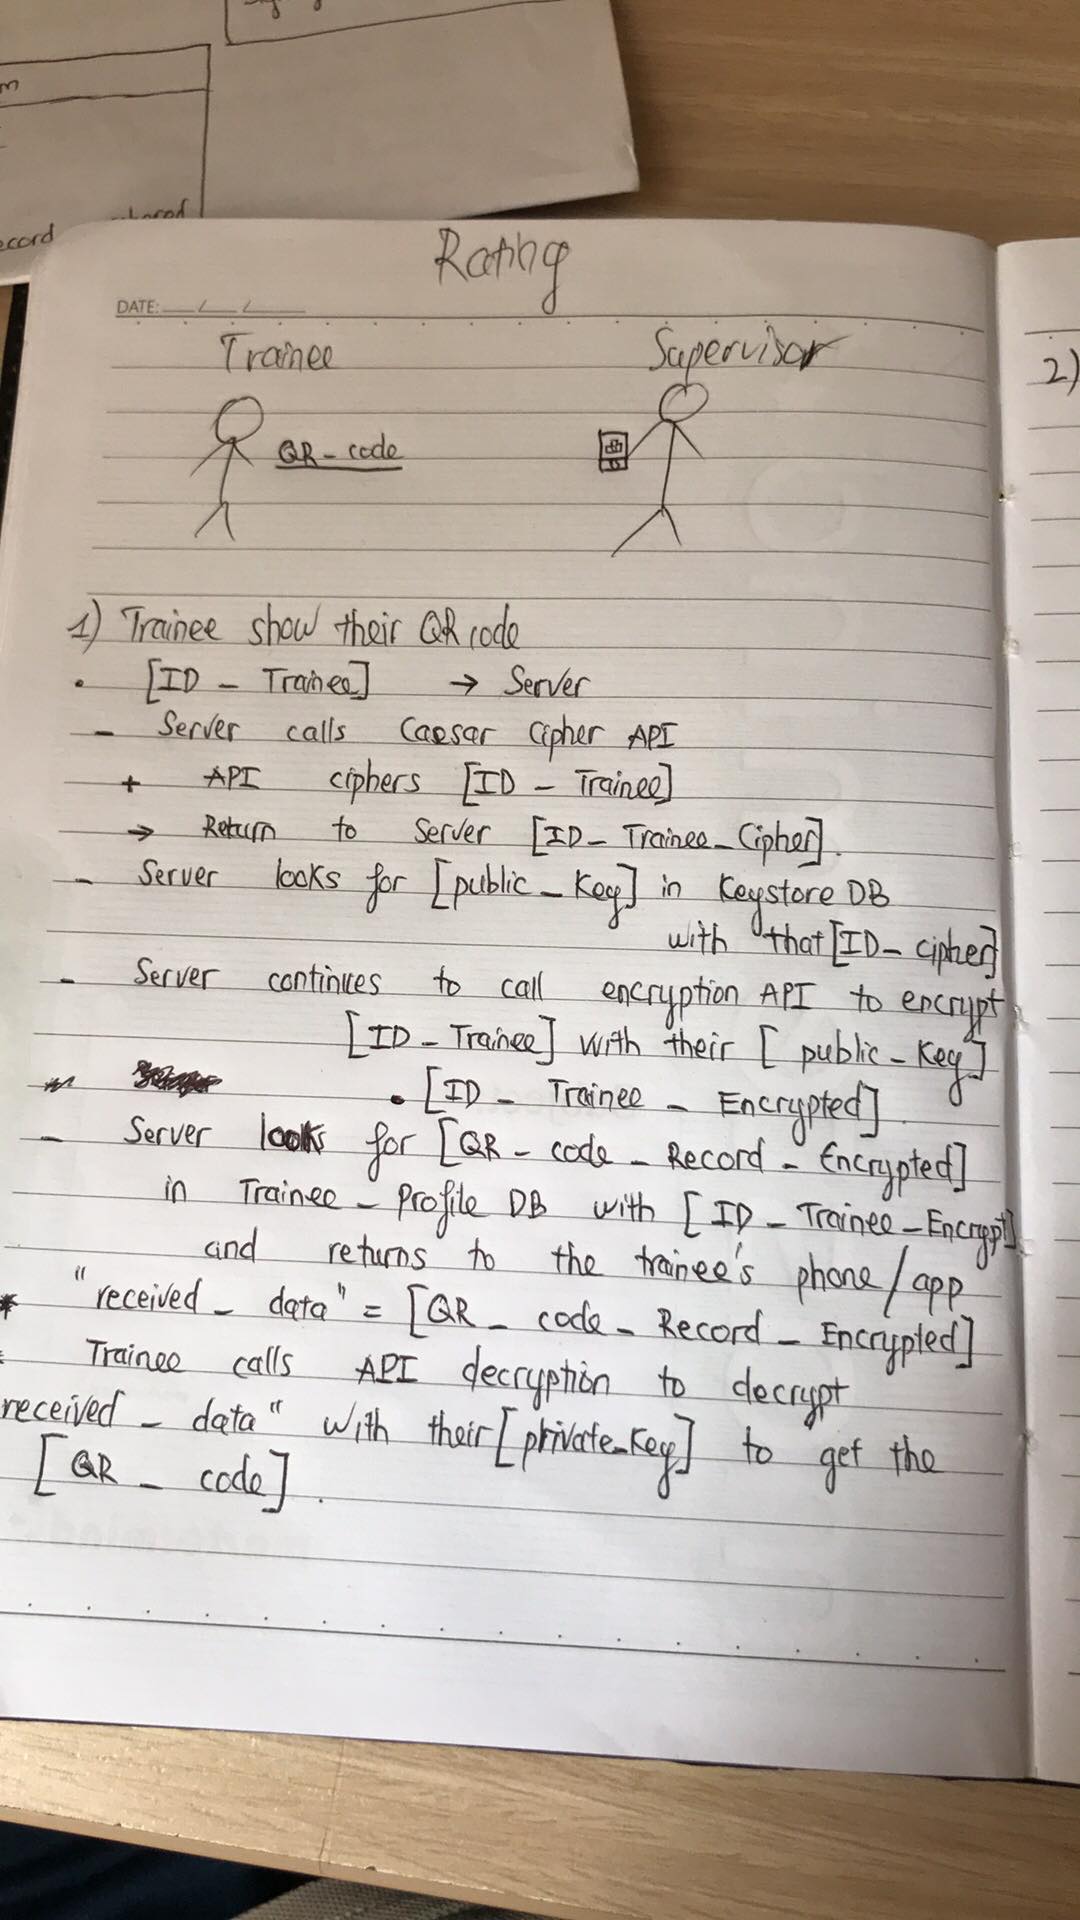 ecord
Rating
DATE:
Trainee Supervisor
QR - code
2)
1) Trainee show their QR code
. [ID - Trainee] → Server
- Server calls Caesar Cipher API
+ API ciphers [ID - Trainee]
→ Return to Server [ID - Trainee - Cipher].
- Server looks for [public - Key] in Keystore DB
with that [ID - cipher]
- Server continues to call encryption API to encrypt
[ID - Trainee] with their [public - Key]
. [ID - Trainee - Encrypted]
- Server looks for [QR - code - Record - Encrypted]
in Trainee - Profile DB with [ID - Trainee - Encrypt]
and returns to the trainee's phone/app
* "received - data" = [QR - code - Record - Encrypted]
Trainee calls API decryption to decrypt
received - data" with their [private - Key] to get the
[QR - code].